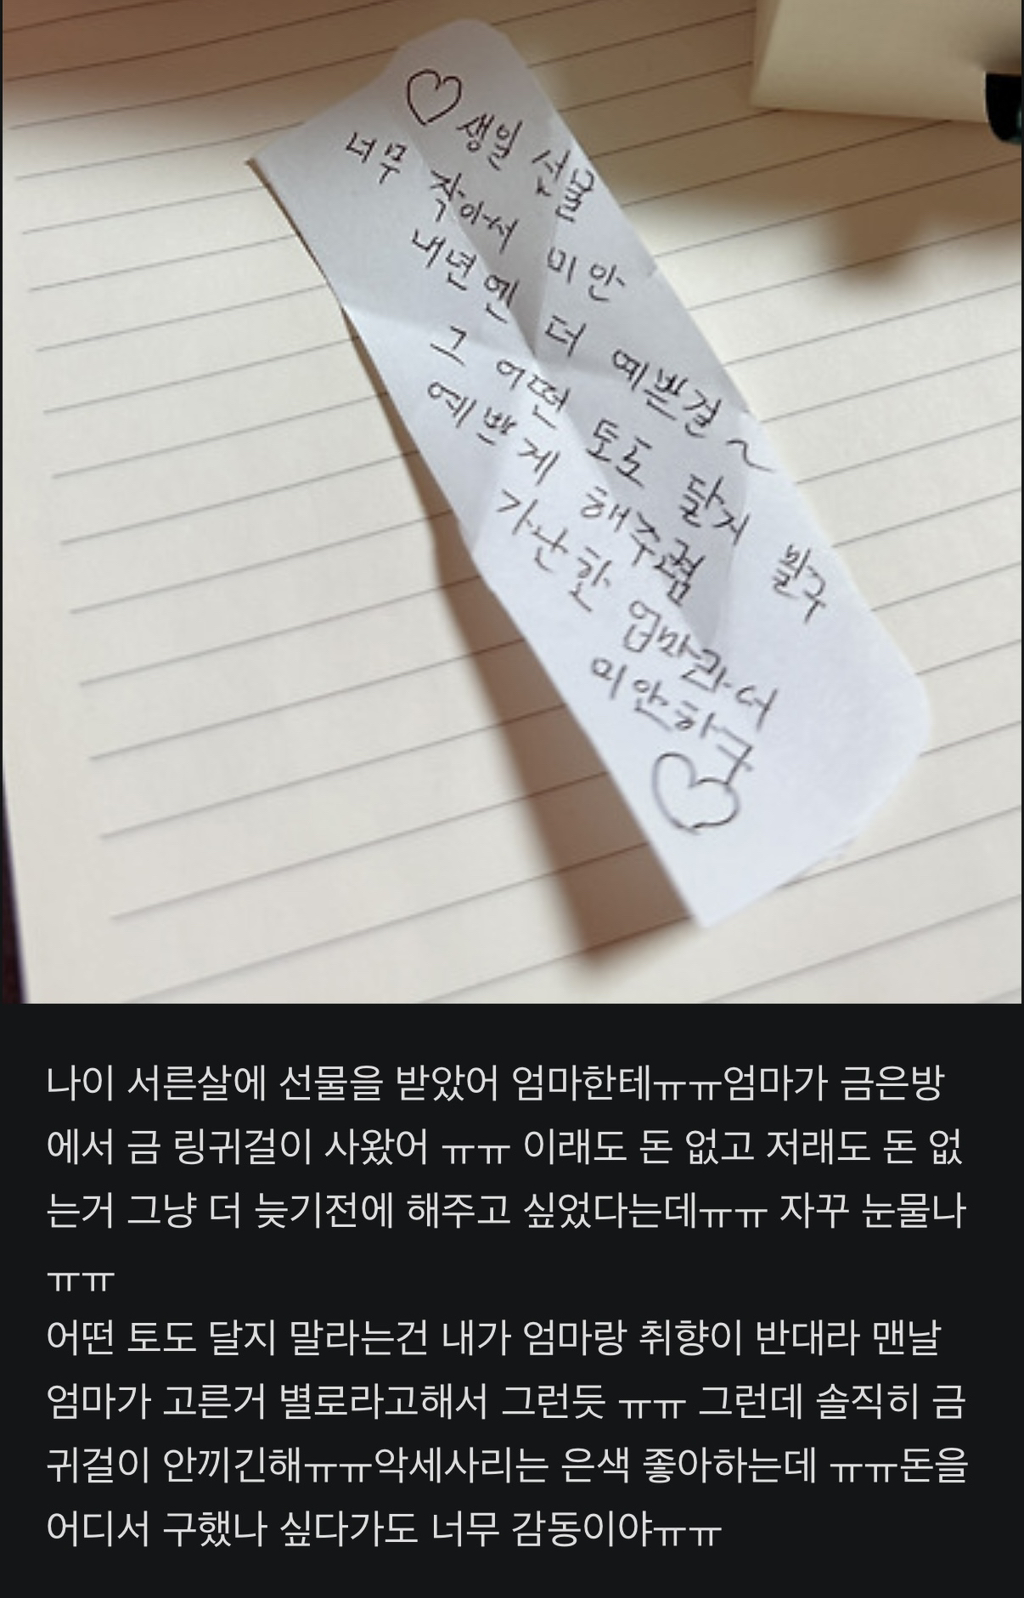 ♡생일 선물
너무 작아서 미안
내년엔 더 예쁜걸~
그 어떤 토도 달지 말구
예쁘게 해주렴
가난한 엄마라서
미안하구
♡
나이 서른살에 선물을 받았어 엄마한테ㅠㅠ엄마가 금은방
에서 금 링귀걸이 사왔어 ㅠㅠ 이래도 돈 없고 저래도 돈 없
는거 그냥 더 늦기전에 해주고 싶었다는데ㅠㅠ 자꾸 눈물나
ㅠㅠ
어떤 토도 달지 말라는건 내가 엄마랑 취향이 반대라 맨날
엄마가 고른거 별로라고해서 그런듯 ㅠㅠ 그런데 솔직히 금
귀걸이 안끼긴해ㅠㅠ악세사리는 은색 좋아하는데 ㅠㅠ돈을
어디서 구했나 싶다가도 너무 감동이야ㅠㅠ